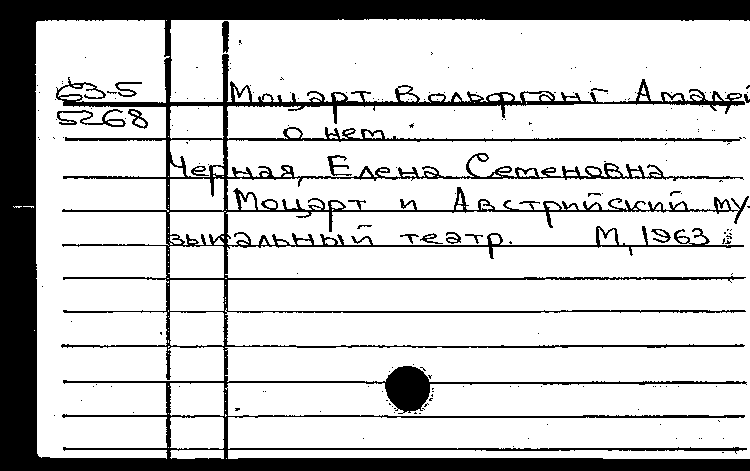 63-5
5268
Моцарт, Вольфганг Амадей
о нем.
Черная, Елена Семеновна
Моцарт и Австрийский му-
зыкальный театр. М., 1963